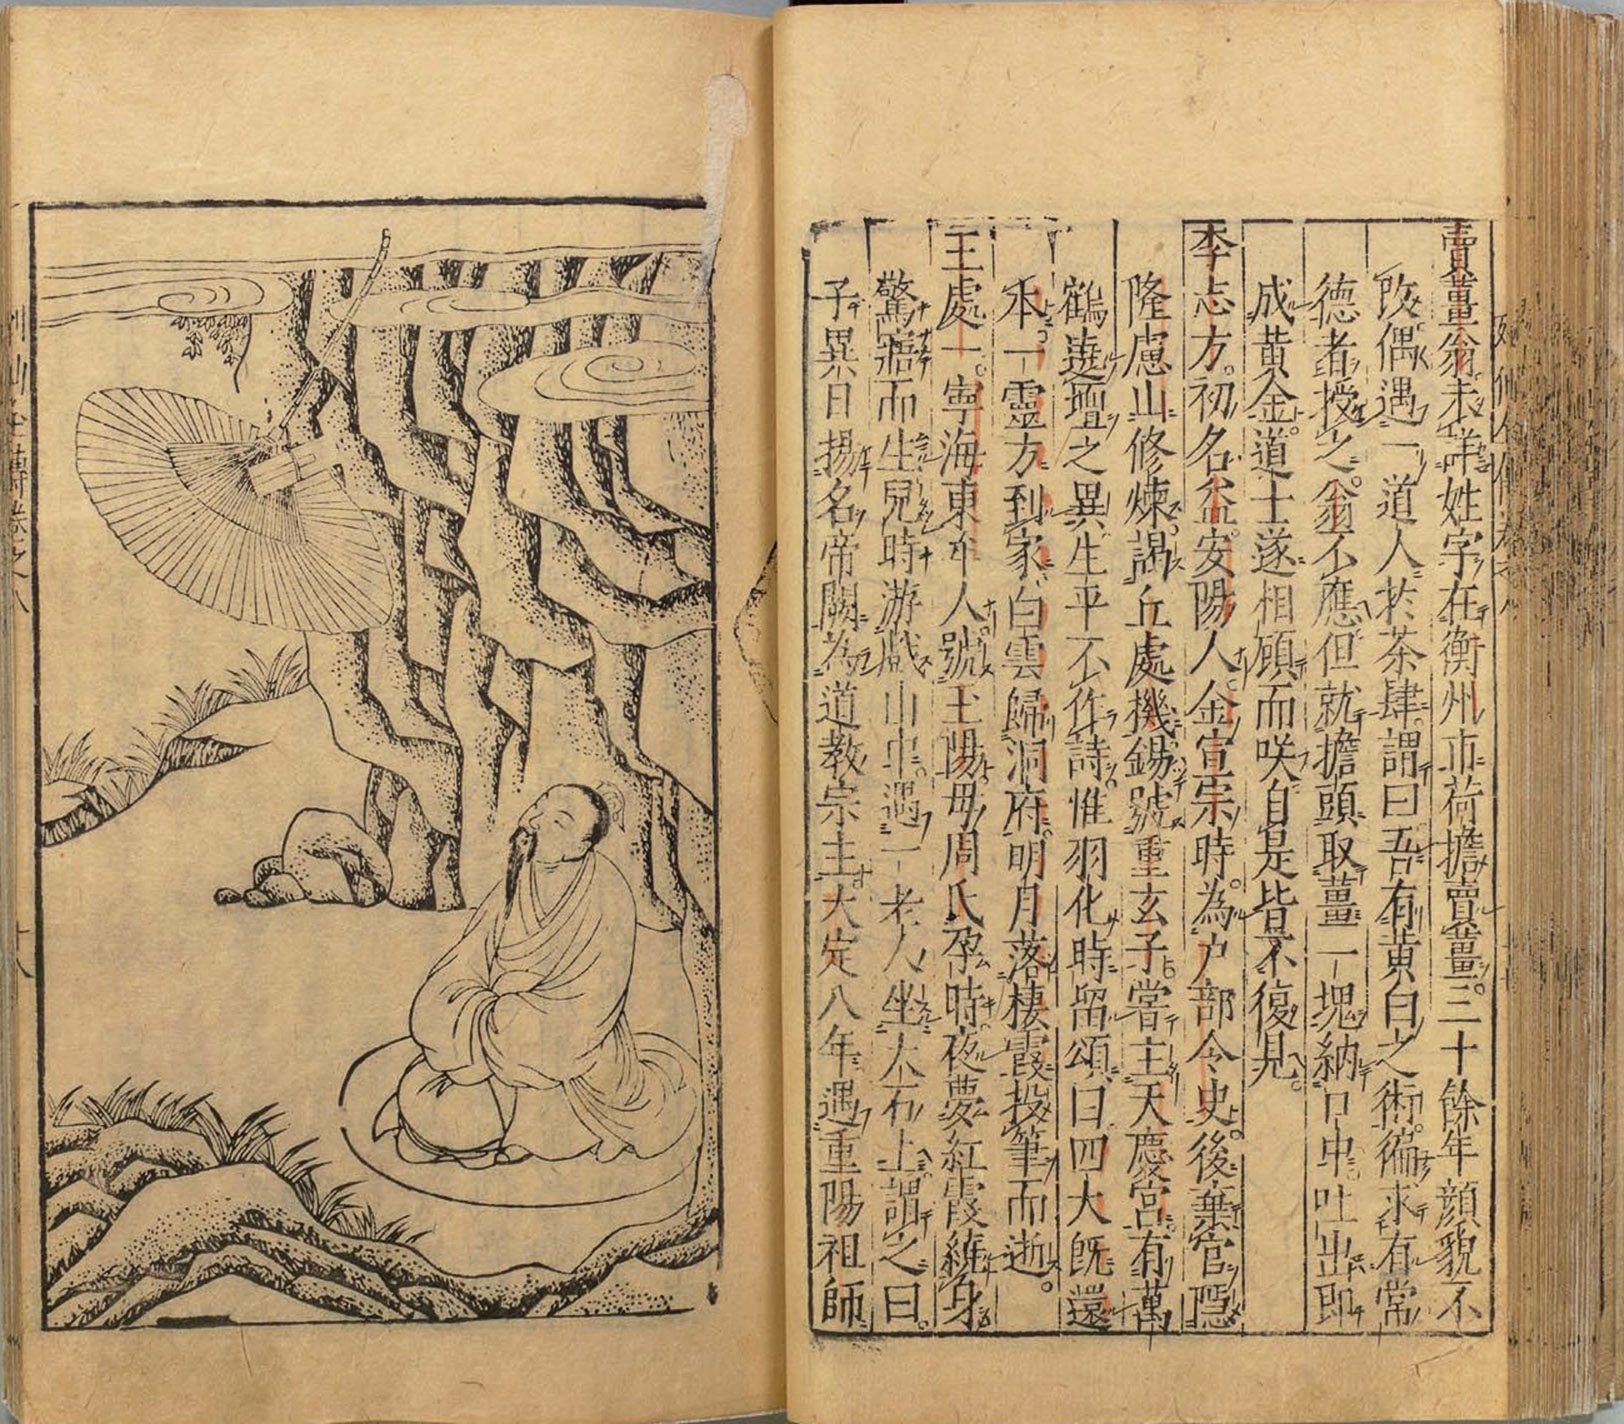 賣薑翁未詳姓字在衡州市荷擔賣薑三十餘年顔貌不
改偶遇一道人於茶肆謂曰吾有黄白之術徧求有常
德者授之翁不應但就擔頭取薑一塊納口中吐出即
成黄金道士遂相顧而咲自是皆不復見
李志方初名益安陽人金宣宗時為户部令史後棄官隱
隆慮山修煉謁丘處機錫號重玄子嘗主天慶宮有萬
鶴遶壇之異生平不作詩惟羽化時留頌曰四大既還
本一靈方到家白雲歸洞府明月落棲霞投筆而逝
王處一寧海東牟人號玉陽母周氏孕時夜夢紅霞繞身
驚寤而生兒時游戲山中遇一老人坐大石上謂之曰
子異日揚名帝闕為道教宗主大定八年遇重陽祖師
列仙全傳卷之八
十八